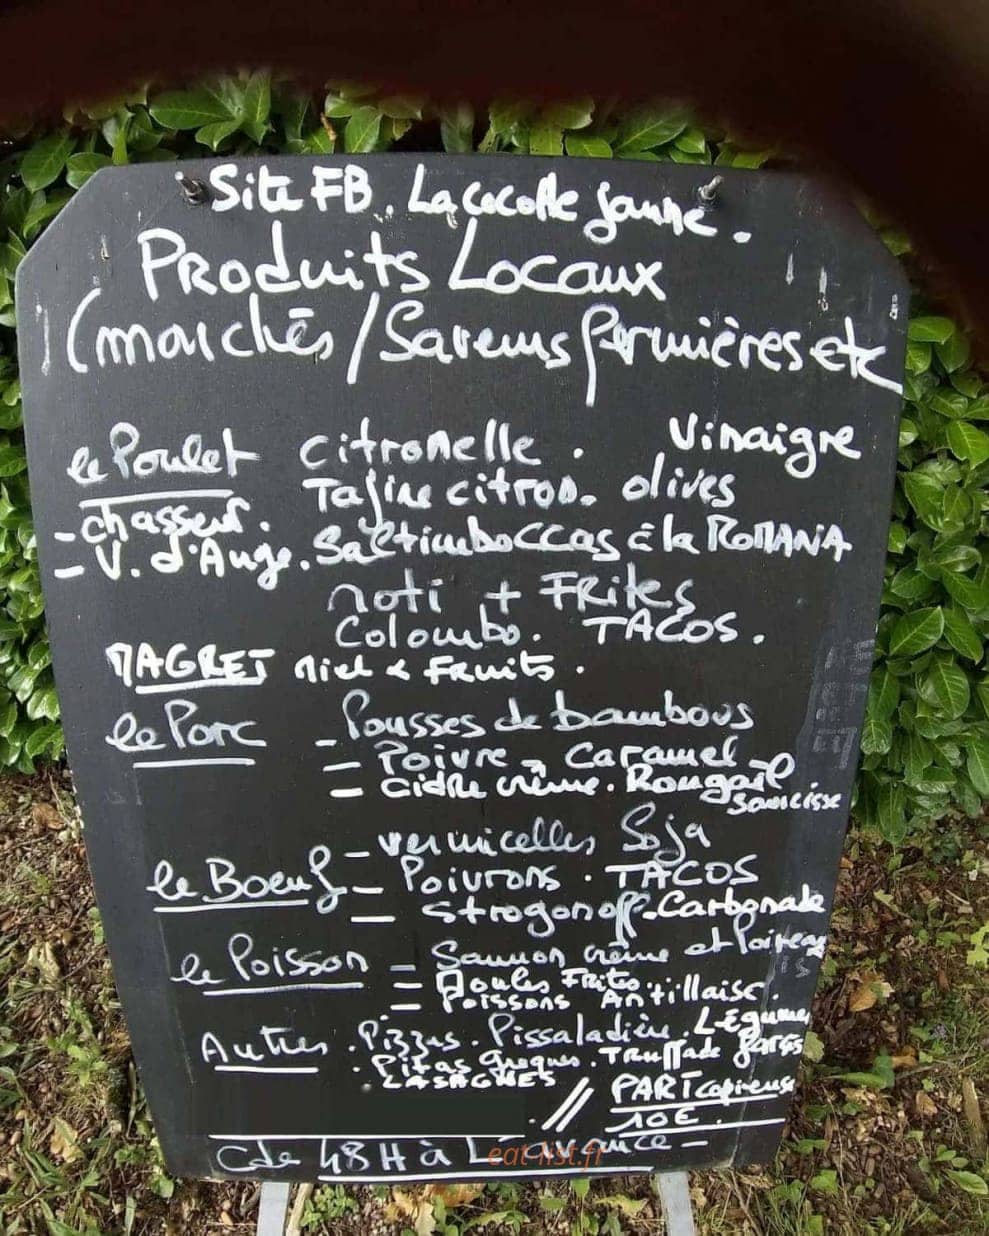 Site FB. La cocotte jaune.
Produits Locaux
(marchés/Saveurs fermières etc
le Poulet citronelle. Vinaigre
Tajine citron. olives
- chasseur.
- V. d'Auge. Saltimboccas à la ROMANA
roti + FRites
Colombo. TACOS.
MAGRET Miel & Fruits.
le Porc - Pousses de bambous
- Poivre - Caramel -
- Cidre crème. Rougail saucisse
- vermicelles Soja
le Boeuf - Poivrons. TACOS
- Strogonoff. Carbonade
le Poisson - Saumon crème et Poireaux
- Moules Frites.
- Poissons Antillaise.
Autres . Pizzas. Pissaladière. Légumes farcis
. Pitas Grecques. Truffade
. LASAGNES
. // PART copieuse
10€.
Cde 48H à L'avance -
eat-list.fr